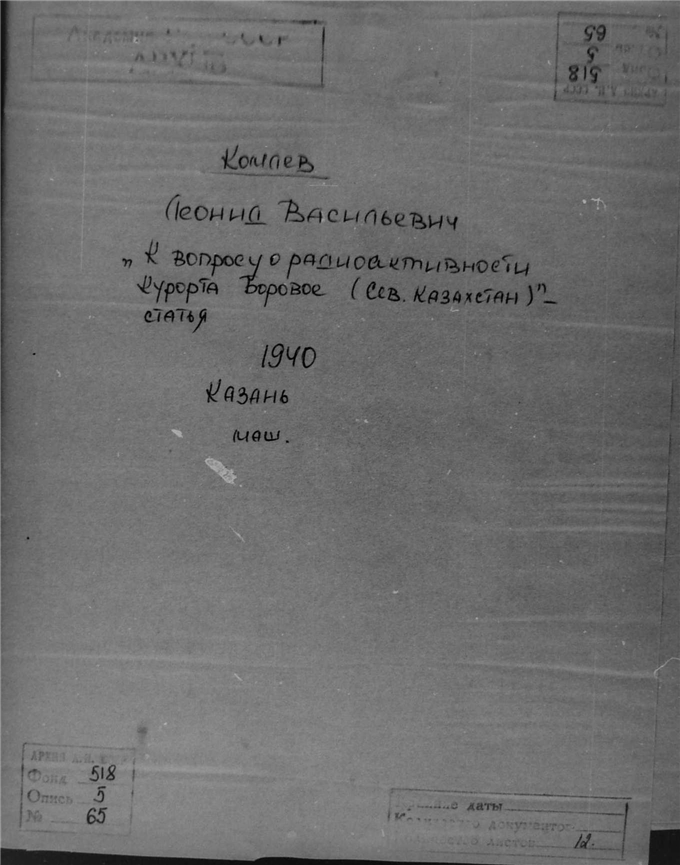 Академия СССР
АРХИВ
№ 65
Опись 5
Фонд 518
АРХИВ А.Н. СССР
Комлев
Леонид Васильевич
„К вопросу о радиоактивности
Курорта Боровое (Сев. Казахстан)"–
статья
1940
Казань
маш.
АРХИВ А.Н.
Фонд 518
Опись 5
№ 65
даты
Количество документов
Количество листов 12.